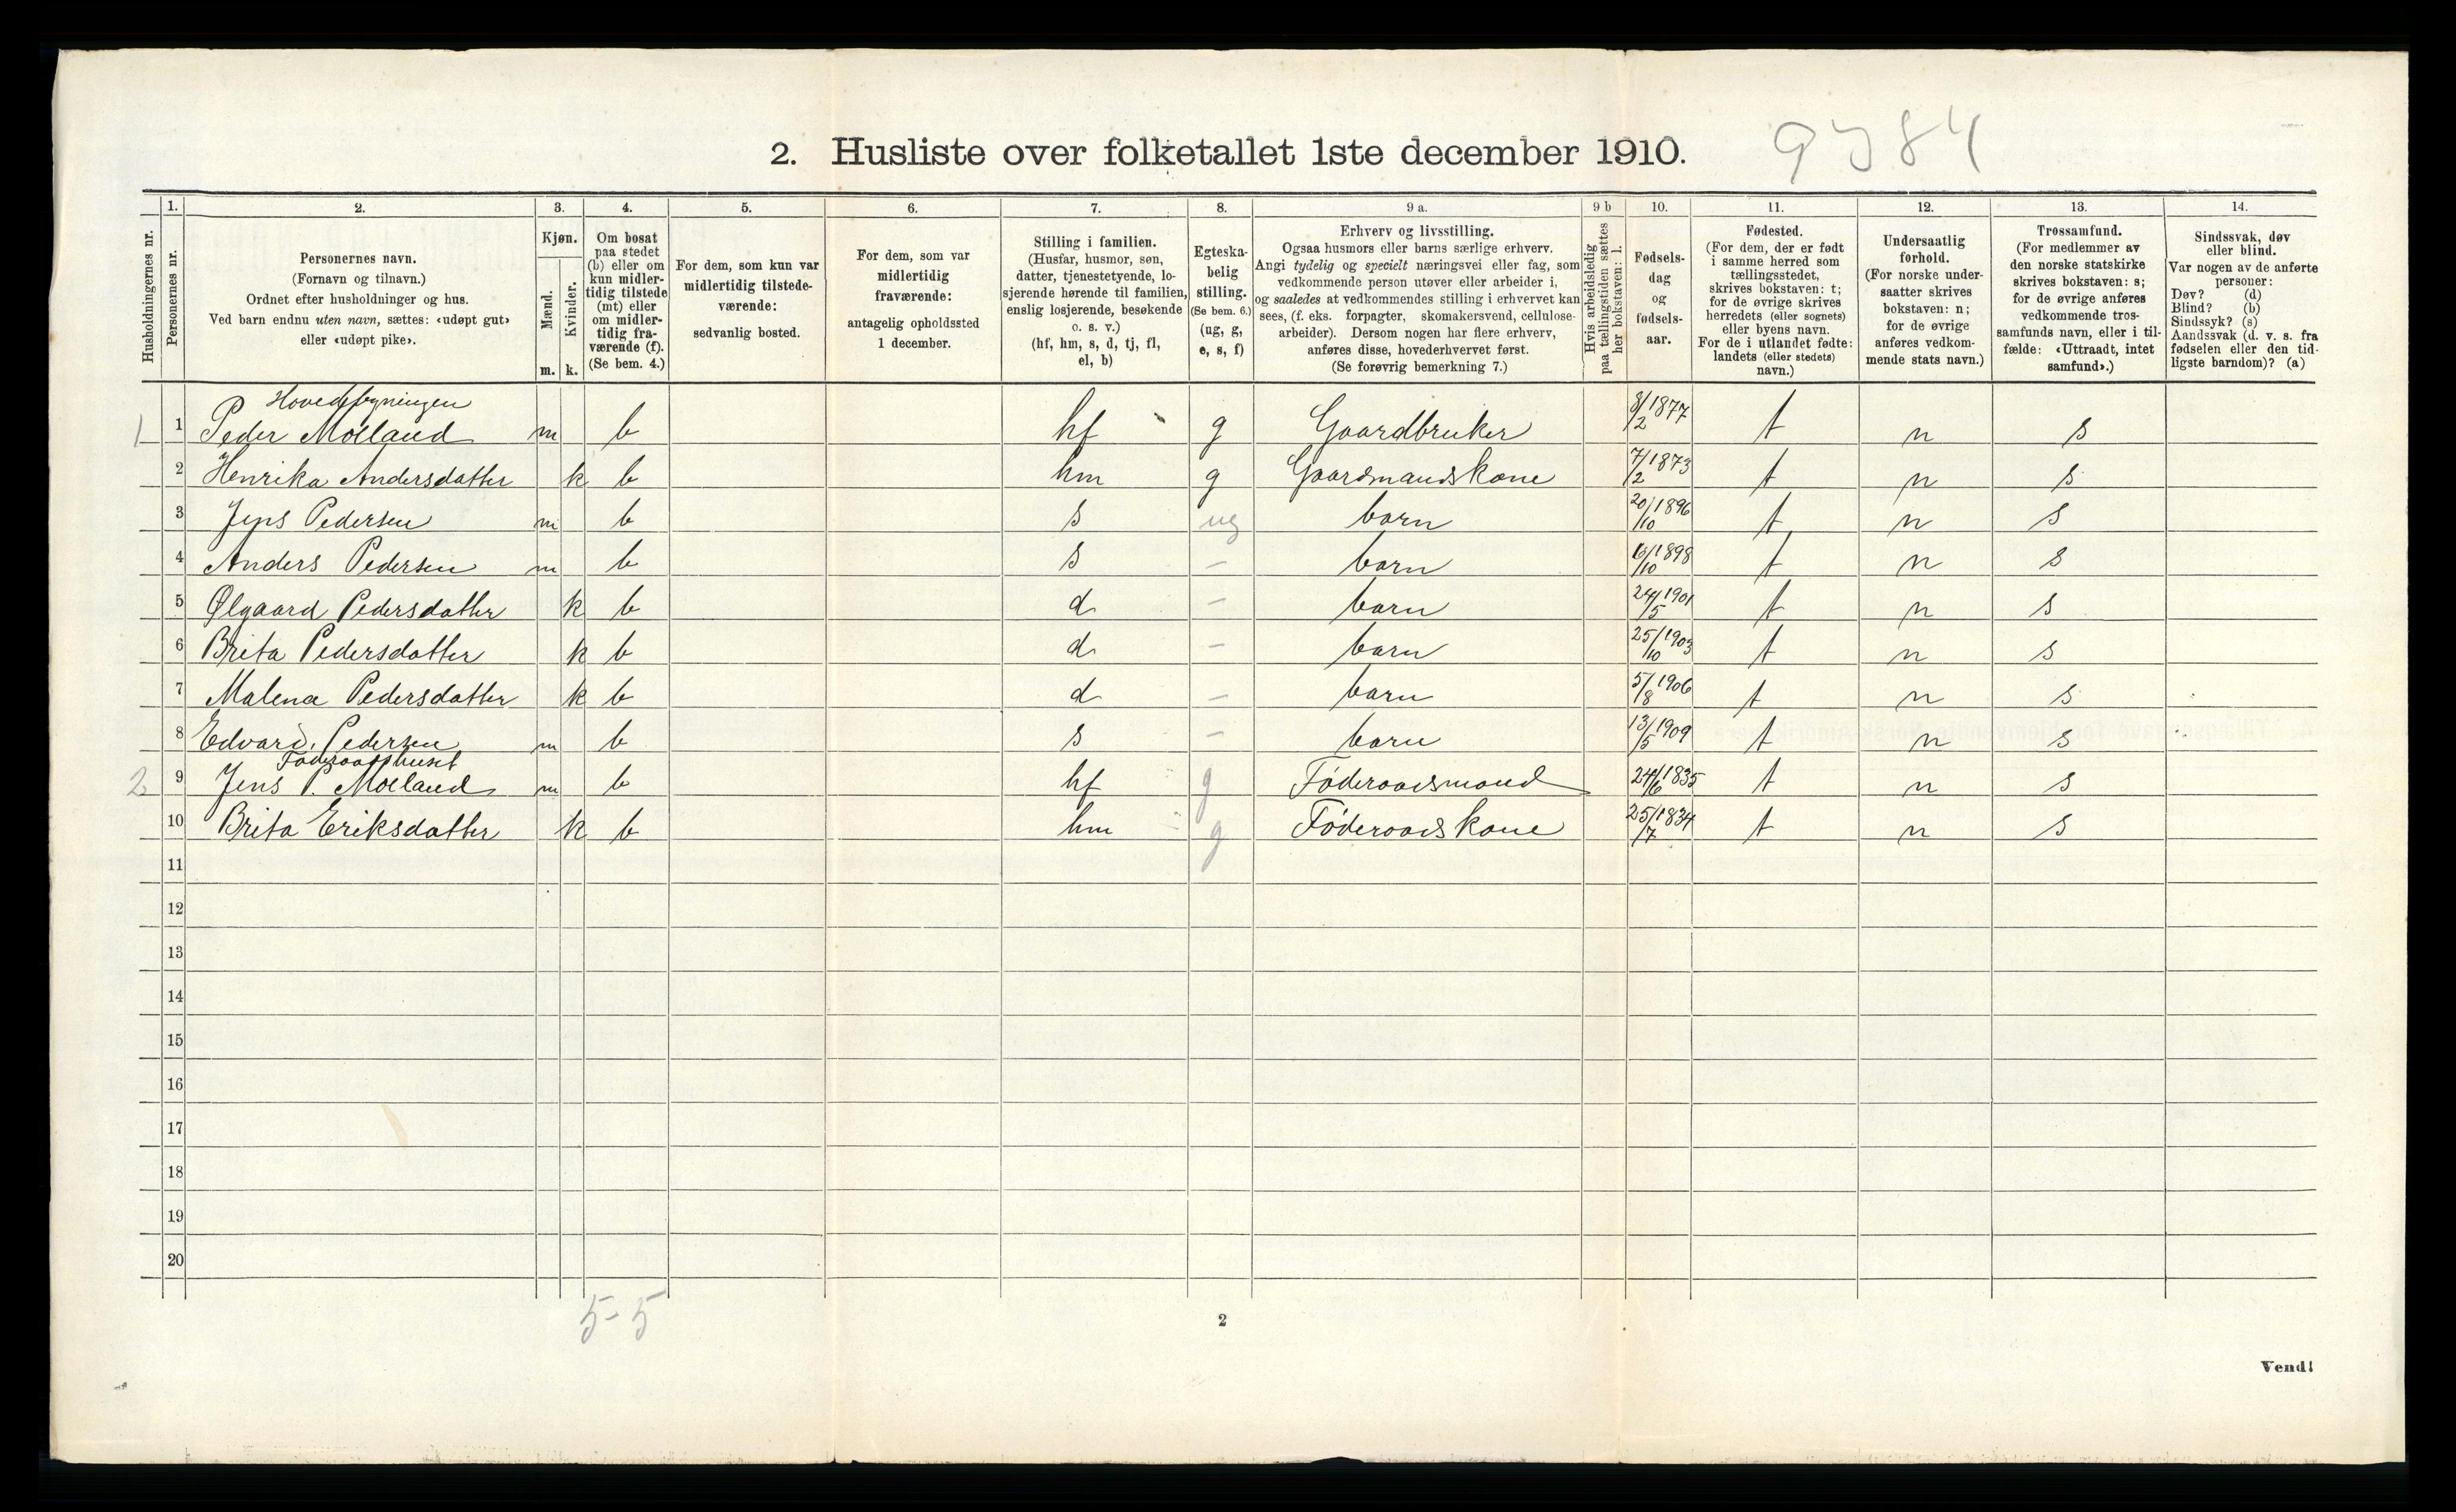 2. Husliste over folketallet 1ste december 1910.
9384
Husholdningernes nr.
1.
Personernes nr.
2.
Personernes navn.
(Fornavn og tilnavn.)
Ordnet efter husholdninger og hus.
Ved barn endnu uten navn, sættes: «udøpt gut»
eller «udøpt pike».
3.
Kjøn.
Mænd.
Kvinder.
m. k.
4.
Om bosat
paa stedet
(b) eller om
kun midler-
tidig tilstede
(mt) eller
om midler-
tidig fra-
værende (f).
(Se bem. 4.)
5.
For dem, som kun var
midlertidig tilstede-
værende:
sedvanlig bosted.
6.
For dem, som var
midlertidig
fraværende:
antagelig opholdssted
1 december.
7.
Stilling i familien.
(Husfar, husmor, søn,
datter, tjenestetyende, lo-
sjerende hørende til familien,
enslig losjerende, besøkende
o. s. v.)
(hf, hm, s, d, tj, fl,
el, b)
8.
Egteska-
belig
stilling.
(Se bem. 6.)
(ug, g,
e, s, f)
9 a.
Erhverv og livsstilling.
Ogsaa husmors eller barns særlige erhverv.
Angi tydelig og specielt næringsvei eller fag, som
vedkommende person utøver eller arbeider i,
og saaledes at vedkommendes stilling i erhvervet kan
sees, (f. eks. forpagter, skomakersvend, cellulose-
arbeider). Dersom nogen har flere erhverv,
anføres disse, hovederhvervet først.
(Se forøvrig bemerkning 7.)
9 b
Hvis arbeidsledig
paa tællingstiden sættes
her bokstaven: l.
10.
Fødsels-
dag
og
fødsels-
aar.
11.
Fødested.
(For dem, der er født
i samme herred som
tællingsstedet,
skrives bokstaven: t;
for de øvrige skrives
herredets (eller sognets)
eller byens navn.
For de i utlandet fødte:
landets (eller stedets)
navn.)
12.
Undersaatlig
forhold.
(For norske under-
saatter skrives
bokstaven: n;
for de øvrige
anføres vedkom-
mende stats navn.)
13.
Trossamfund.
(For medlemmer av
den norske statskirke
skrives bokstaven: s;
for de øvrige anføres
vedkommende tros-
samfunds navn, eller i til-
fælde: «Uttraadt, intet
samfund».)
14.
Sindssvak, døv
eller blind.
Var nogen av de anførte
personer:
Døv? (d)
Blind? (b)
Sindssyk? (s)
Aandssvak (d. v. s. fra
fødselen eller den tid-
ligste barndom)? (a)
Hovedbygningen
1 1 Peder Molland m b hf g Gaardbruker 8/2 1877 t n s
2 Henrika Andersdatter k b hm g Gaardmandskone 7/2 1873 t n s
3 Jens Pedersen m b s ug barn 20/10 1896 t n s
4 Anders Pedersen m b s - barn 6/10 1898 t n s
5 Ølgaard Pedersdatter k b d - barn 24/5 1901 t n s
6 Brita Pedersdatter k b d - barn 25/10 1903 t n s
7 Malena Pedersdatter k b d - barn 5/8 1906 t n s
8 Edvard Pedersen m b s - barn 13/5 1909 t n s
Føderaadshuset
2 9 Jens P. Molland m b hf g Føderaadsmand 24/6 1835 t n s
10 Brita Eriksdatter k b hm g Føderaadskone 25/7 1834 t n s
11
12
13
14
15
16
17
18
19
20
5-5
2
Vend!